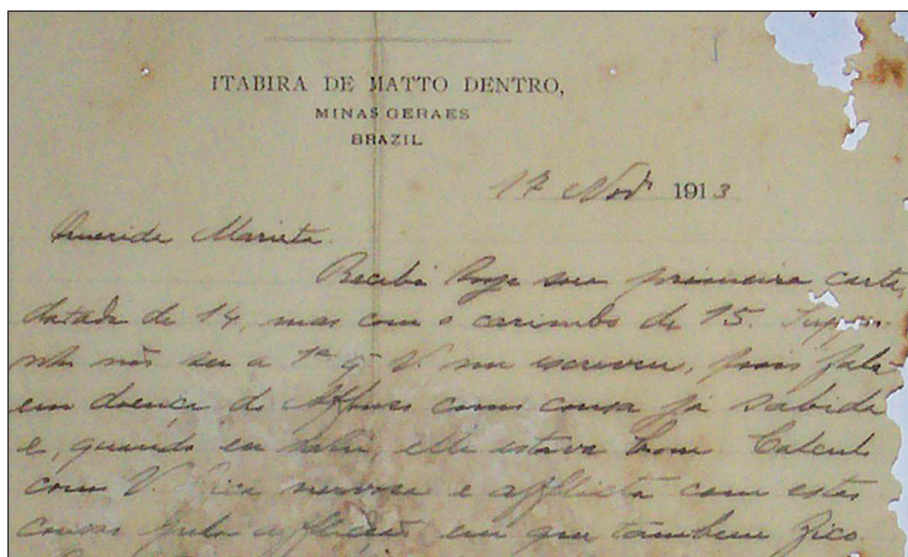 ITABIRA DE MATTO DENTRO,
MINAS GERAES
BRAZIL
17 Novº 1913
Querida Marieta
Recebi hoje sua primeira carta,
datada de 14, mas com o carimbo de 15. Suppo-
nho não ser a 1ª q̃ V. me escreveu, pois fala
em doença do Affonso como cousa já sabida
e, quando eu sahi, elle estava bom. Calculo
como V. fica nervosa e afflicta com estas
cousas pela afflicção em que tambem fico.